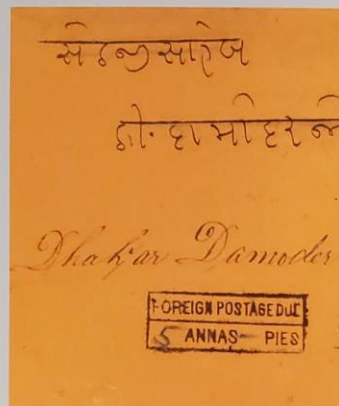 सेठजी साहेब
ठा. दामोदर जे
Damoder
FOREIGN POSTAGE DUE
5 ANNAS — PIES